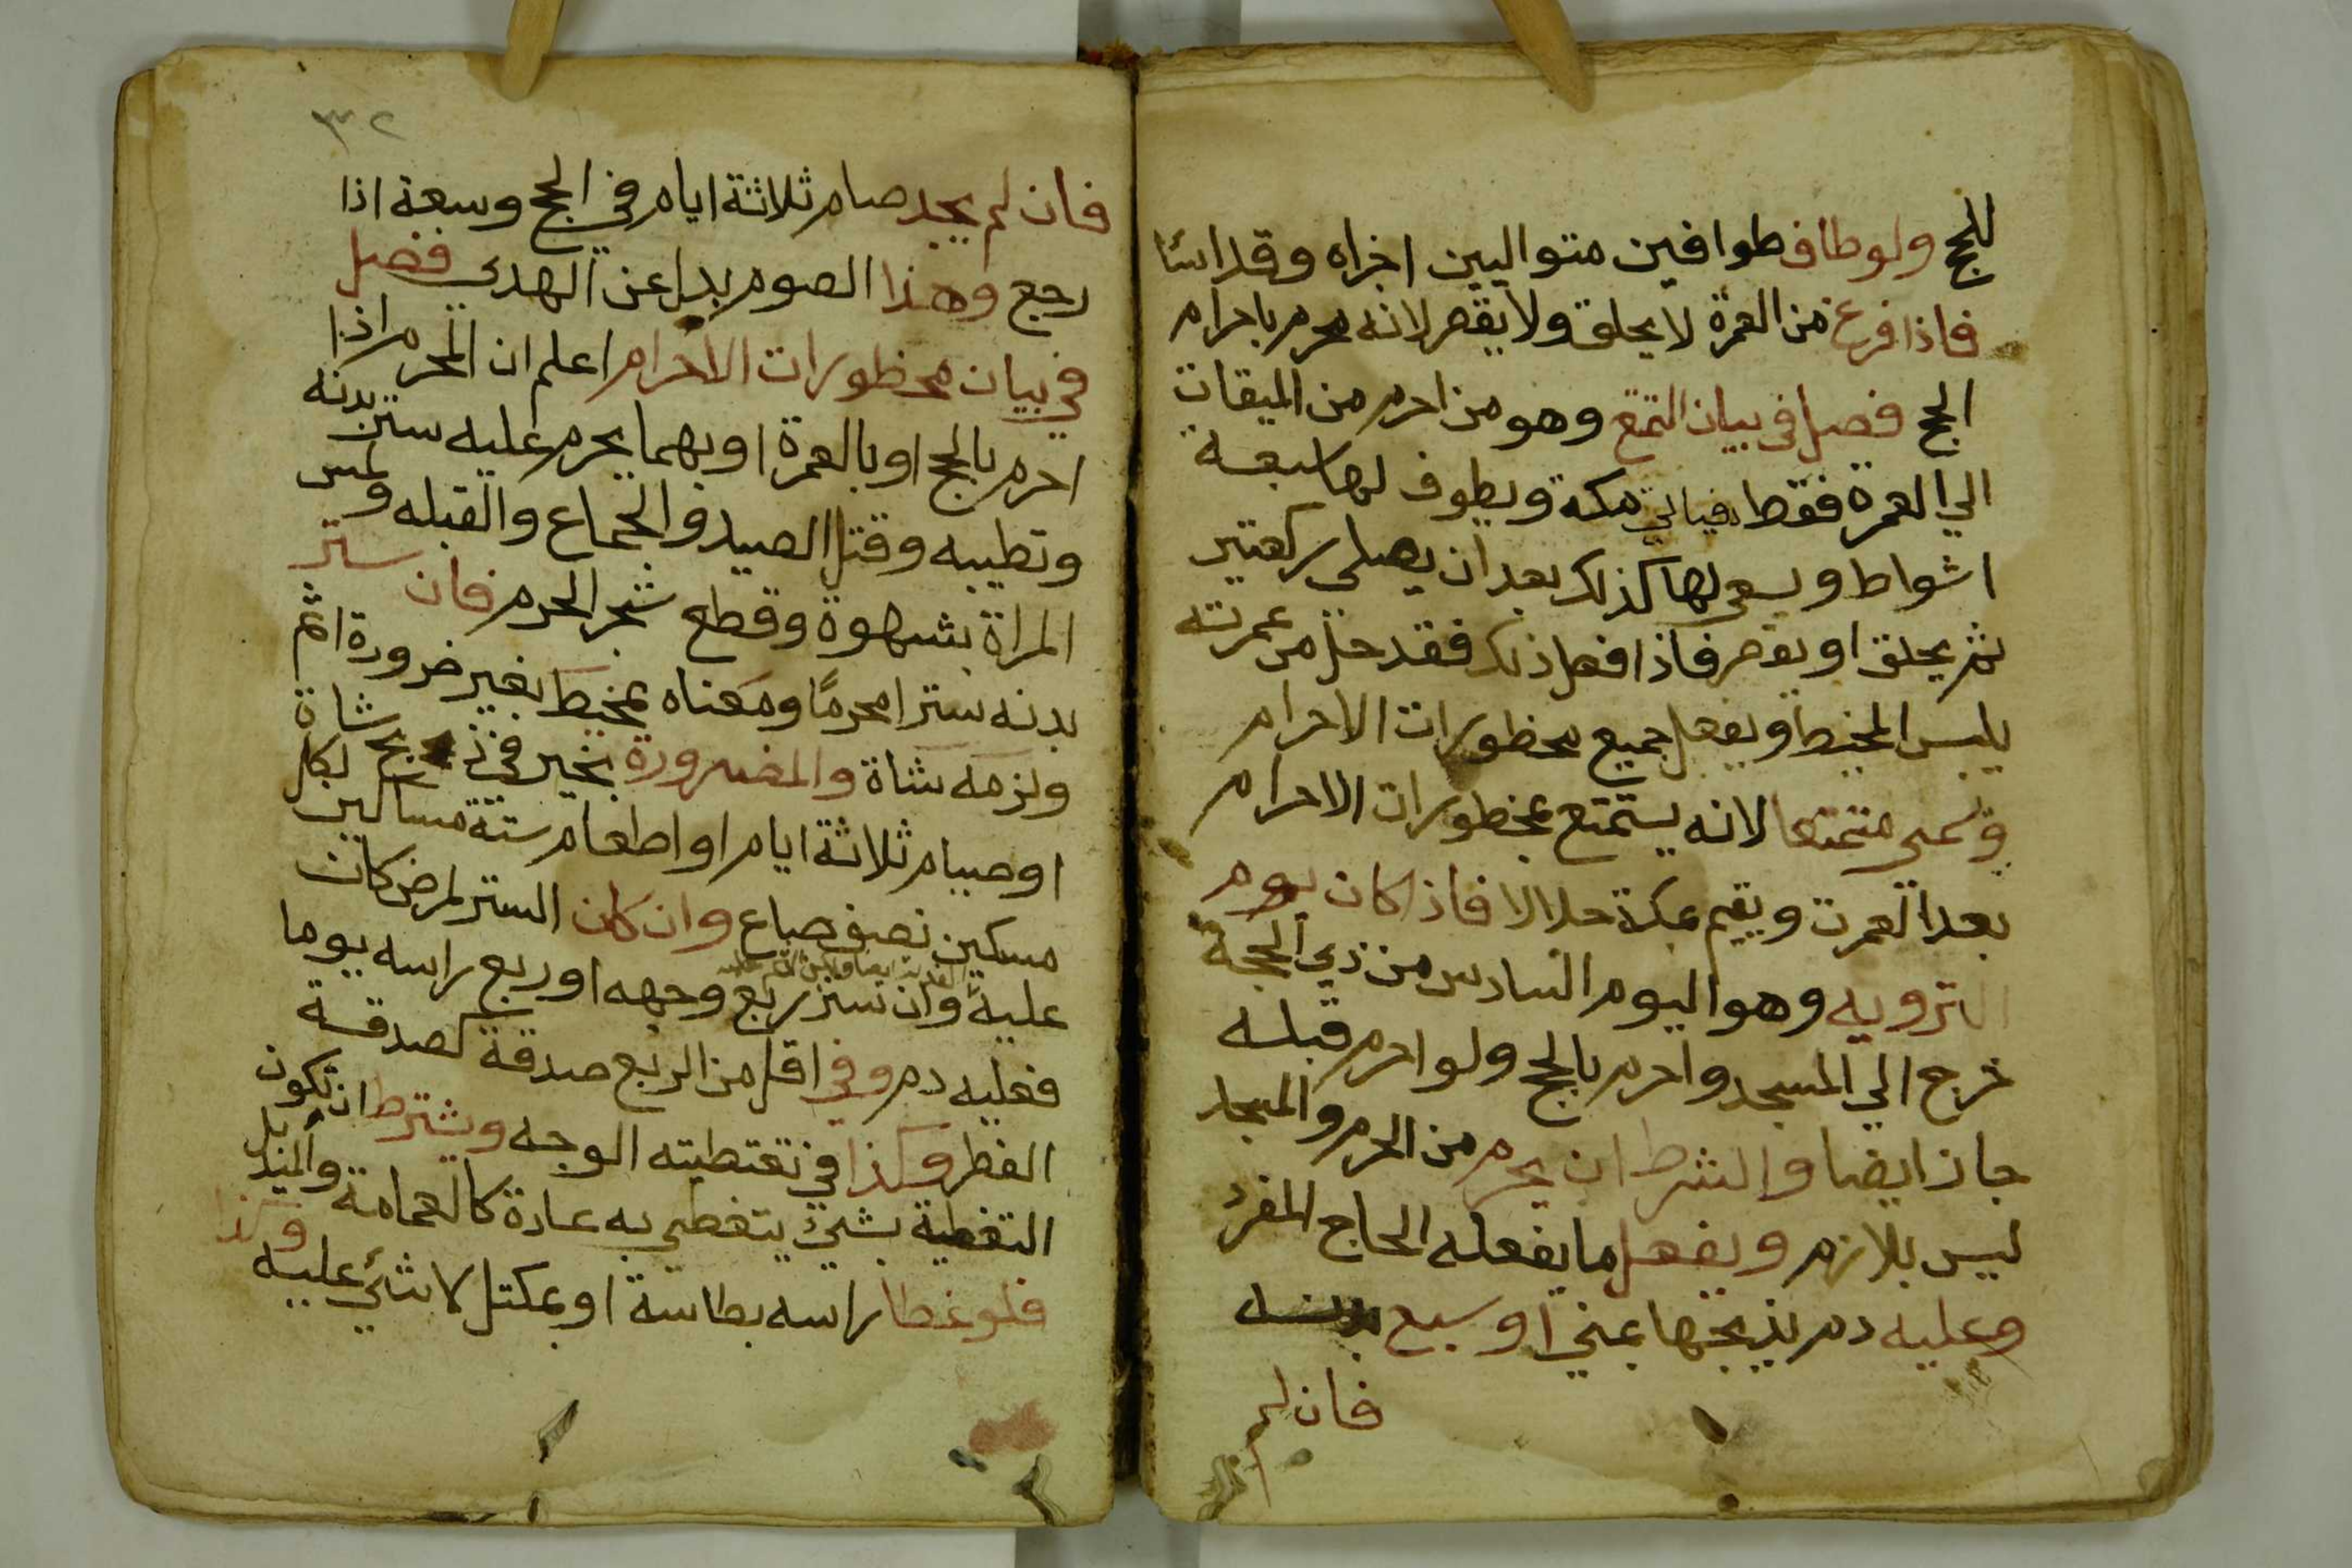 للحج ولو طاف طوافين متواليين اخراه وقد اسئا
فاذا فرغ من العمرة لا يحلق ولا يقصر لانه محرم باحرام
الحج فصل في بيان التمتع وهو من احرم من الميقات
الي العمرة فقط فياتي مكة ويطوف لها سبعة
اشواط ويسعى لها كذلك بعد ان يصلي ركعتين
ثم يحلق او يقصر فاذا فعل ذلك فقد حل من عمرته
يلبس المخيط ويفعل جميع محظورات الاحرام
وسمي متمتعا لانه يستمتع بمحظورات الاحرام
بعد العمرت ويقيم بمكة حلالا فاذا كان يوم
الترويه وهو اليوم السادس من ذي الحجة
خرج الي المسجد واحرم بالحج ولو احرم قبله
جاز ايضا والشرط ان يحرم من الحرم والمسجد
ليس بلازم ويفعل ما يفعله الحاج المفرد
وعليه دم يذبحها بمني او سبع بدنه
فان لم
٣٢
فان لم يجد صام ثلاثة ايام في الحج وسبعة اذا
رجع وهذا الصوم بدل عن الهدي فصل
في بيان محظورات الاحرام اعلم ان المحرم اذا
احرم بالحج او بالعمرة او بهما يحرم عليه ستر بدنه
وتطيبه وقتل الصيد والجماع والقبله ولمس
المراة بشهوة وقطع شجر الحرم فان ستر
بدنه سترا محرمًا ومعناه بمخيط بغير ضرورة اثم
ولزمه شاة والمضرورة بخير في ذبح شاة
او صيام ثلاثة ايام او اطعام ستة مساكين لكل
مسكين نصف صاع وان كان الستر لمرض كان
عليه وان ستر ربع وجهه او ربع راسه يوما
فعليه دم وفي اقل من الربع صدقة كصدقة
الفطر وكذا في تغتطيته الوجه ويشترط ان تكون
التغطية بشيئ يتغطي به عادة كالعمامة والمنديل
فلو غطا راسه بطاسة او بمكتل لا شئي عليه وكذا